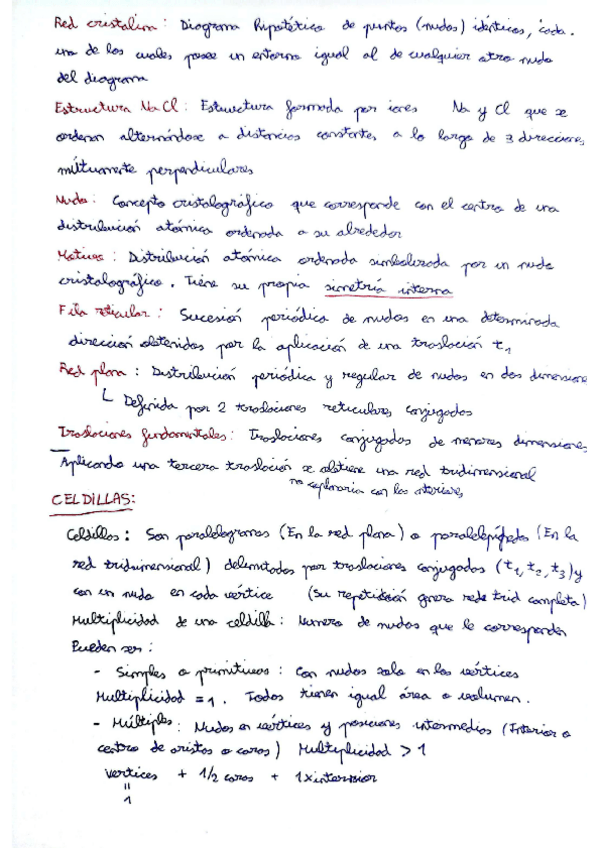 Red cristalina: Diagrama hipotético de puntos (nudos) idénticos, cada
uno de los cuales posee un entorno igual al de cualquier otro nudo
del diagrama
Estructura NaCl: Estructura formada por iones Na y Cl que se
ordenan alternándose a distancias constantes a lo largo de 3 direcciones
mútuamente perpendiculares
Nudo: Concepto cristalográfico que corresponde con el centro de una
distribución atómica ordenada a su alrededor
Motivos: Distribución atómica ordenada simbolizada por un nudo
cristalográfico. Tiene su propia simetría interna
Fila reticular: Sucesión periódica de nudos en una determinada
dirección obtenidos por la aplicación de una traslación t1
Red plana: Distribución periódica y regular de nudos en dos dimensione
Definida por 2 traslaciones reticulares conjugadas
Traslaciones fundamentales: Traslaciones conjugadas de menores dimensiones
Aplicando una tercera traslación se obtiene una red tridimensional
no coplanaria con las anteriores
CELDILLAS:
Celdillas: Son paralelogramos (En la red plana) o paralelepípedos (En la
red tridimensional) delimitados por traslaciones conjugadas (t1, t2, t3) y
con un nudo en cada vértice (Su repetición genera rede trid completa)
Multiplicidad de una celdilla: Número de nudos que le corresponden
Pueden ser:
- Simples o primitivas: Con nudos solo en los vértices
Multiplicidad = 1. Todos tienen igual área o volumen.
- Múltiples: Nudos en vértices y posiciones intermedias (Interior o
centro de aristas o caras) Multiplicidad > 1
vértices + 1/2 caras + 1x interior
=
1